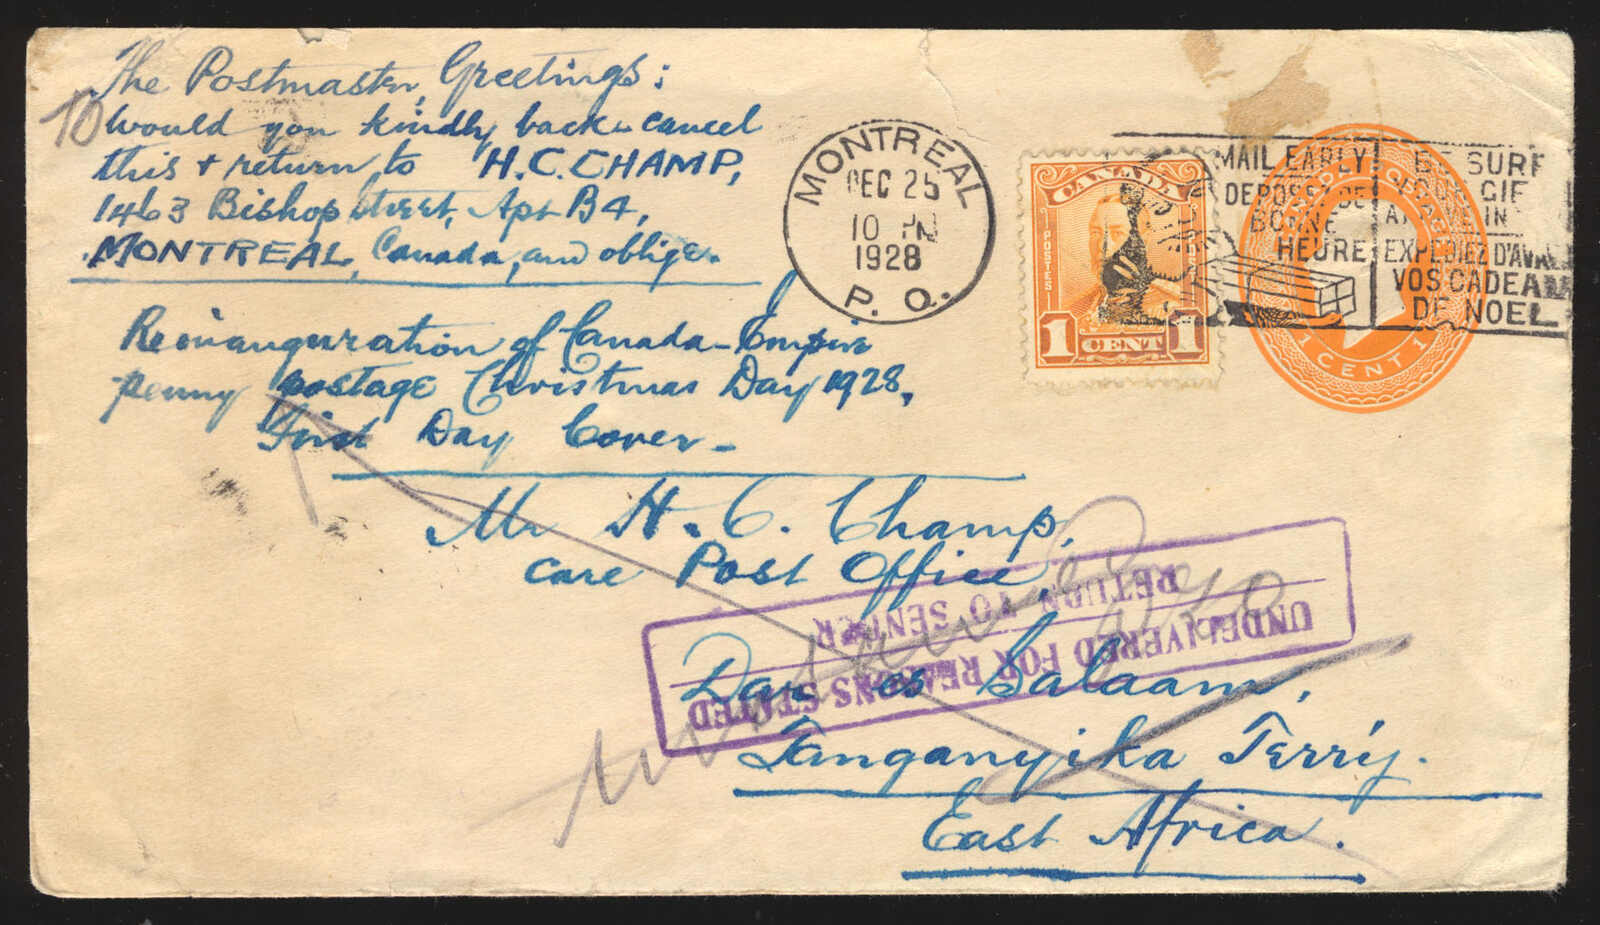 The Postmaster, Greetings:
To Would you kindly back-cancel
this + return to H.C. CHAMP,
1463 Bishop Street, Apt B4,
MONTREAL, Canada, and oblige.
Reinauguration of Canada-Empire
penny postage Christmas Day 1928,
First Day Cover-
MONTREAL
DEC 25
10 PM
1928
P. Q.
CANADA
POSTES
1 CENT 1
MAIL EARLY
DEPOSEZ DE
BONNE
HEURE
BE SURE
YOUR GIF
ARRIVE IN
EXPEDIEZ D'AVAN
VOS CADEAU
DE NOEL
1 CENT 1
Mr H. C. Champ,
care Post Office,
Dar es Salaam,
Tanganyika Terr'y.
East Africa.
UNDELIVERED FOR REASONS STATED
RETURN TO SENDER